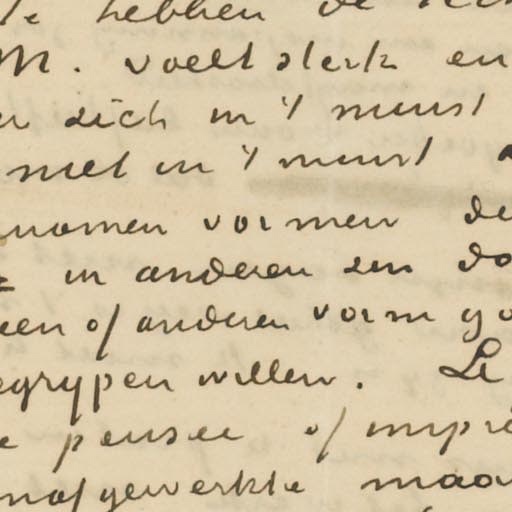 te hebben de
M. voelt sterk en
zich in 't minst
niet in 't minst
nomen vormen de
in anderen zin do
een of anderen vorm go
egrypen willen. Le
pensee of impre
nafgewerkte maar